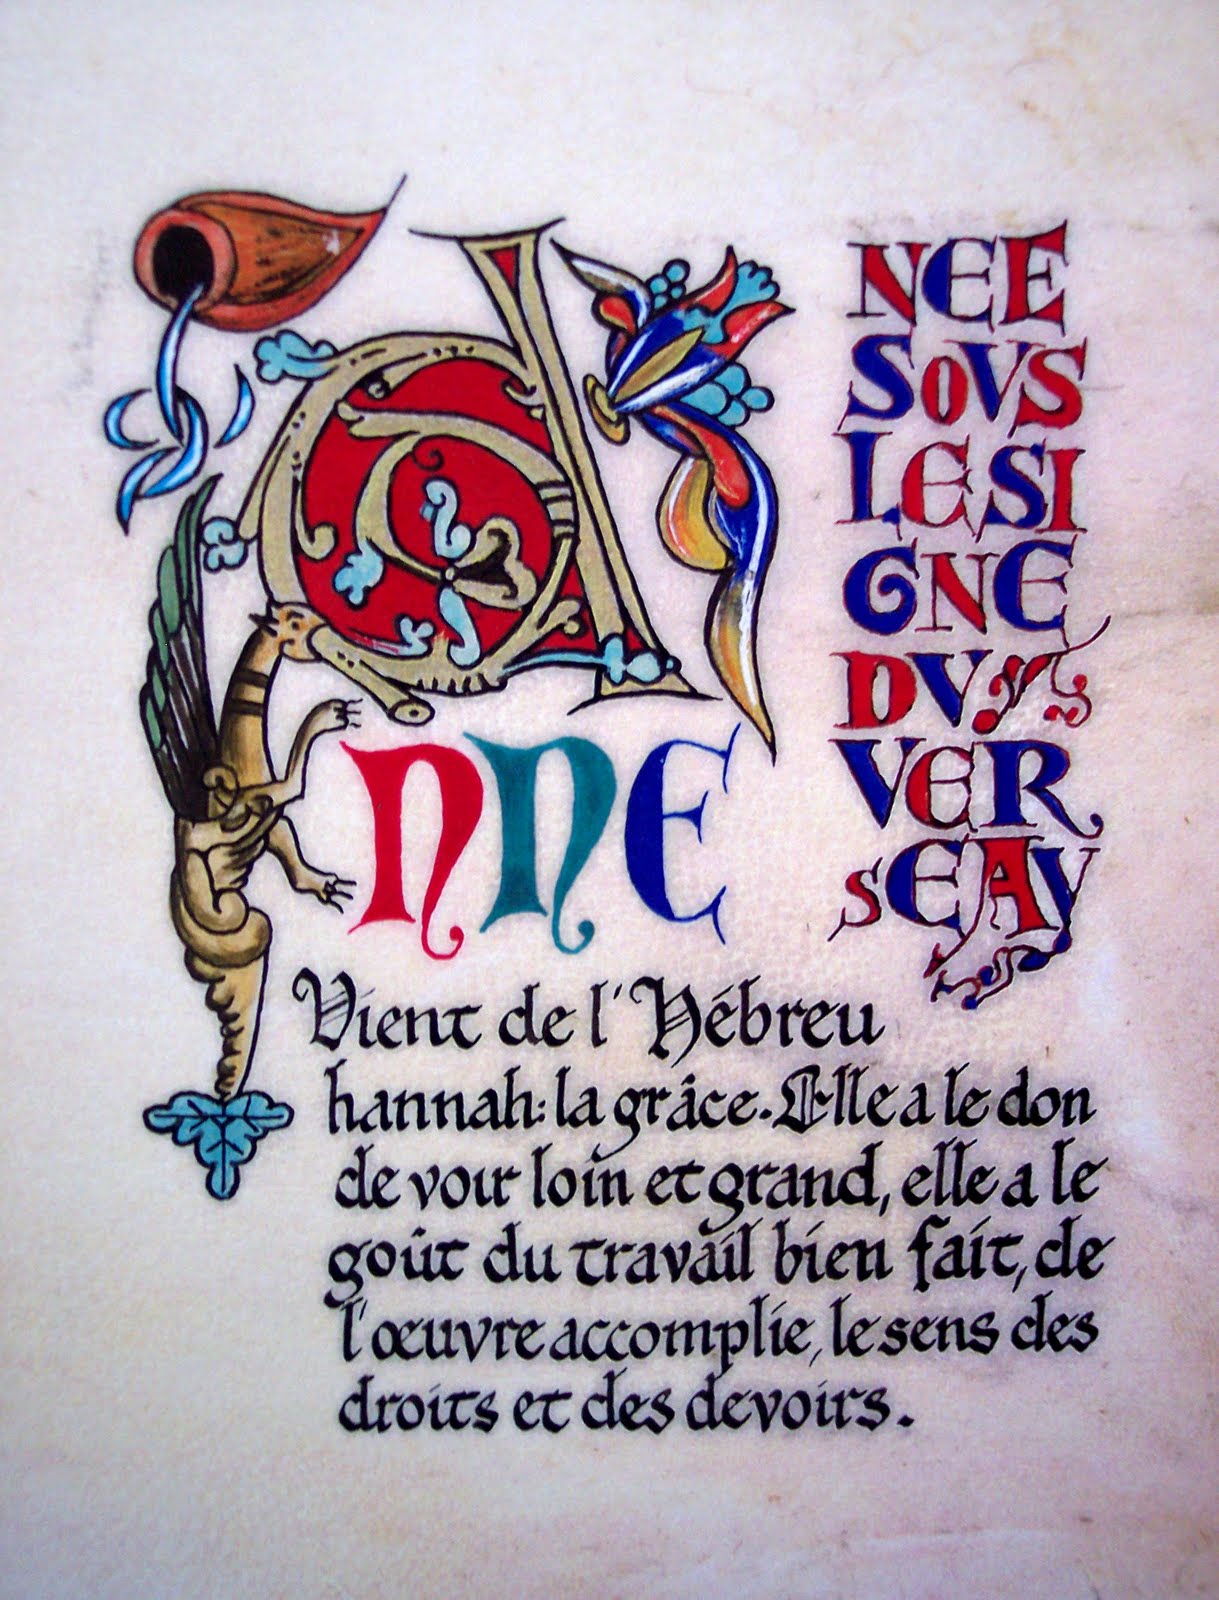 ANNE
NEE
SOVS
LE SI
GNE
DV
VER
SEAV
Vient de l'Hébreu
hannah: la grâce. Elle a le don
de voir loin et grand, elle a le
goût du travail bien fait, de
l'œuvre accomplie, le sens des
droits et des devoirs.